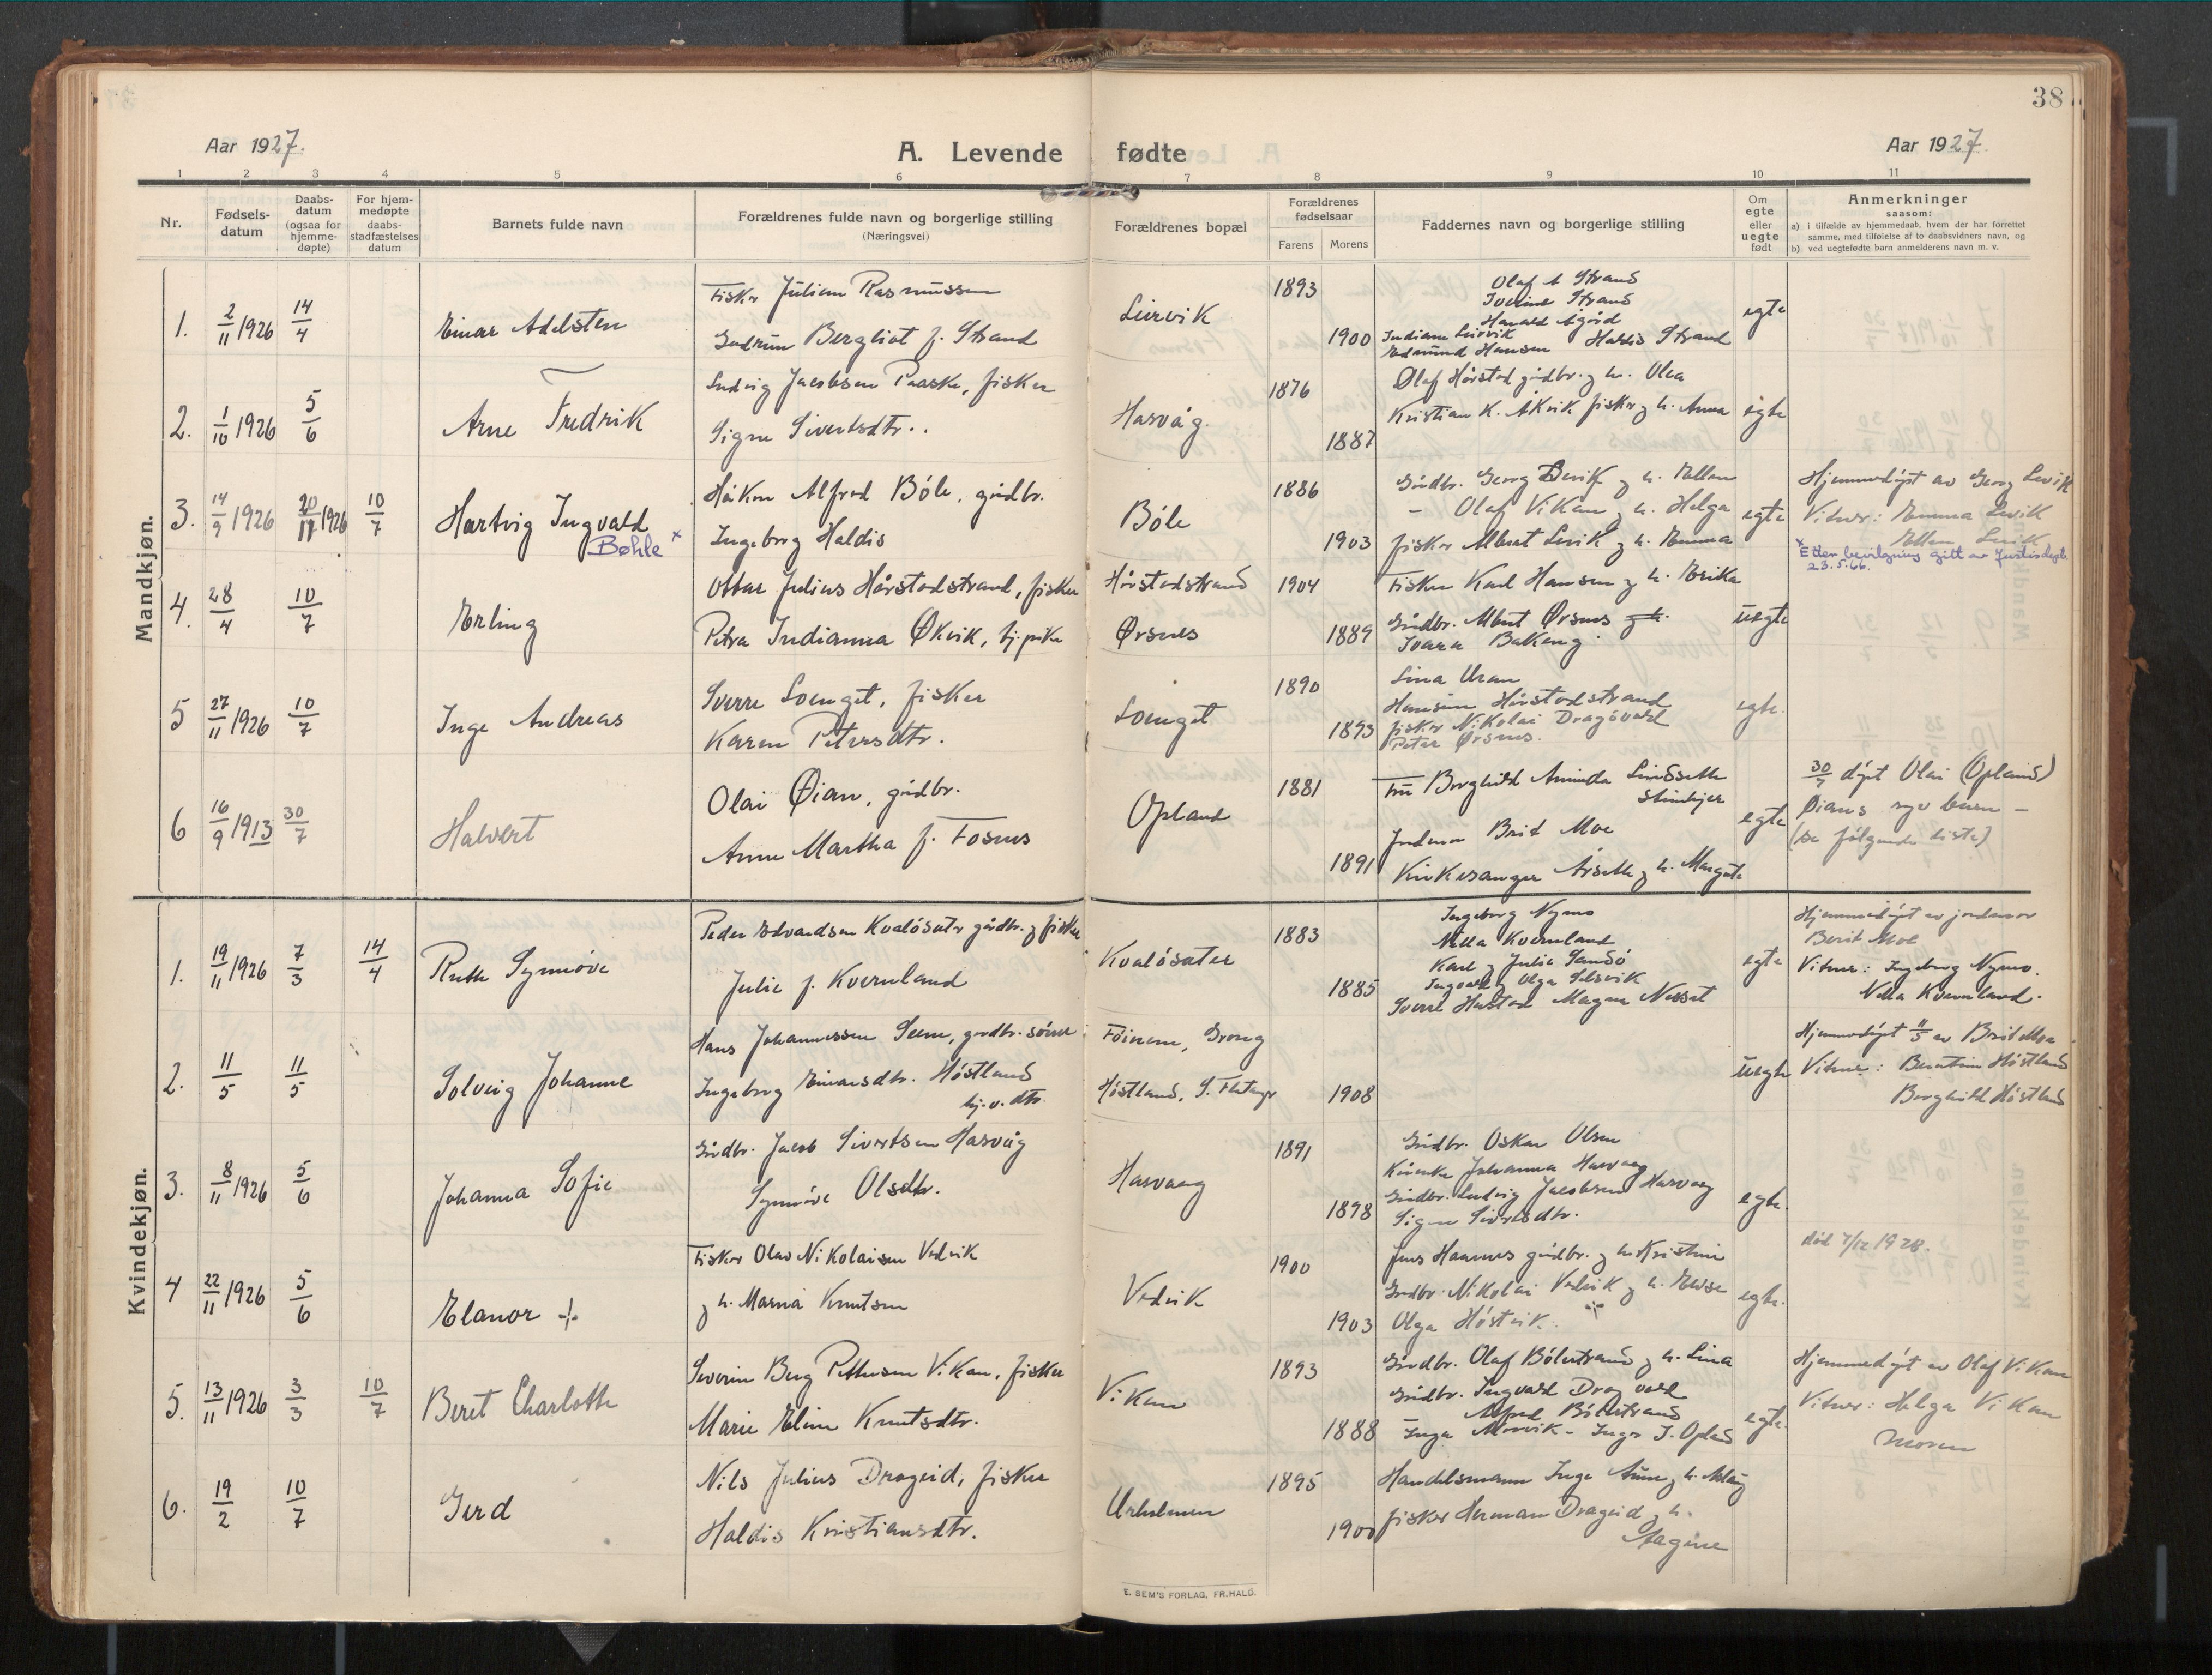 38
Aar 1927.
A. Levende fødte
Aar 1927.
1 2 3 4 5 6 7 8 9 10 11
Nr.
Fødsels-
datum
Daabs-
datum
(ogsaa for
hjemme-
døpte)
For hjem-
medøpte
daabs-
stadfæstelses
datum
Barnets fulde navn
Forældrenes fulde navn og borgerlige stilling
(Næringsvei)
Forældrenes bopæl
Forældrenes
fødselsaar
Farens Morens
Faddernes navn og borgerlige stilling
Om
egte
eller
uegte
født
Anmerkninger
saasom:
a) i tilfælde av hjemmedaab, hvem der har forrettet
samme, med tilføielse af to daabsvidners navn, og
b) ved uegtefødte barn anmelderens navn m. v.
Mandkjøn.
1. 2/11 1926 14/4
Einar Adelsten
Fisker Julian Rasmussen
Gudrun Bergliot f. Strand
Leirvik
1893
1900
Olaf A Strand
Iverine Strand
Harald Agård
Indiane Leirvik
Edmund Hansen Haldis Strand
egte
2. 1/10 1926 5/6
Arne Fredrik
Ludvig Jacobsen Paaske, fisker
Signe Sivertsdtr..
Hasvåg.
1876
1887
Olaf Hårstad gårdbr. og h. Olea
Kristian K. Åkvik fisker og h. Anna
egte
3. 14/9 1926 20/11 1926 10/7
Hartvig Ingvald
Bøhle x
Håkon Alfred Böle, gårdbr.
Ingeborg Haldis
Böle
1886
1903
Gårdbr. Georg Levik og h. Ellen
- Olaf Vikan og h. Helga
fisker Albert Levik og h. Emma
egte
Hjemmedöpt av Georg Levik
Vitner: Emma Levik
Ellen Levik
x Etter bevilgning gitt av Justisdept.
23.5.66.
4. 28/4 10/7
Erling
Ottar Julius Hårstadstrand, fisker
Petra Indianna Økvik, tj.pike
Hårstadstrand
Ørsnes
1904
1889
Fisker Karl Hansen og h. Erika
Gårdbr. Albert Ørsnes og h.
Ivara Bakeng
uegte
5 27/11 1926 10/7
Inge Andreas
Sverre Loenget, fisker
Karen Petersdtr.
Loenget
1890
1893
Lina Uran
Hansine Hårstadstrand
fisker Nikolai Dragövold
Peter Ørsnes.
egte.
6 16/9 1913 30/7
Halvert
Olai Øian, gårdbr.
Anne Martha f. Fosnes
Opland
1881
1891
Fru Borghild Aminda Lindseth
Steinkjer
Jordmor Brit Moe
Kirkesanger Årseth og h. Margete
egte
30/7 döpt Olai (Opland)
Øians syv barn -
(se følgende liste)
Kvindekjøn.
1. 19/11 1926 7/3 14/4
Ruth Synnöve
Peder Edvardsen Kvalösæter gårdbr. og fisker
Julie f. Kvernland
Kvalösæter
1883
1885
Ingeborg Nymo
Nella Kvernland
Karl og Julie Sandö
Ingvald og Olga Selsvik
Sverre Hustad Magne Nesset
egte
Hjemmedöpt av jordmor
Berit Moe
Vitner: Ingeborg Nymo.
Nella Kvernland.
2. 11/5 11/5
Solveig Johanne
Hans Johannessen Seem, gårdbr. sönn
Ingeborg Einarsdtr. Höstland
hj.v. dtr.
Föinem, Grong
Höstland, S. Flatanger
1908
uegte
Hjemmedöpt 11/5 av Brit Moe
Vitner: Berntine Höstland
Borghild Höstland
3. 8/11 1926 5/6
Johanna Sofie
Gårdbr. Jacob Sivertsen Hasvåg
Synnöve Olsdtr.
Hasvaag
1891
1898
Gårdbr. Oskar Olsen
Johanna Hasvaag
Gårdbr. Ludvig Jacobsen Hasvaag
Signe Sivertsdtr.
egte.
4 22/11 1926 5/6
Elanor +
Fisker Olav Nikolaisen Vedvik
og h. Marna Knutsen
Vedvik
1900
1903
Jens Hasvnes gårdbr. og h. Kristine
Gårdbr. Nikolai Vedvik og h. Elise
Olga Höstvik.
egte.
död 7/12 1928.
5. 13/11 1926 3/3 10/7
Beret Charlotte
Severin Berg Pettersen Vikan, fisker
Marie Eline Knutsdtr.
Vikan
1893
1888
Gårdbr. Olaf Bölestrand og h. Lina
Gårdbr. Ingvald Dragvold
Alfred Bölestrand
Inga Mosvik - Inger J. Opland
egte.
Hjemmedöpt av Olaf Vikan
Vitner: Helga Vikan
Moren
6. 19/2 10/7
Gerd
Nils Julius Drageid, fisker
Haldis Kristiansdtr.
Urholmen
1895
1900
Handelsmann Inge Aune og h. Aslaug
fisker Herman Drageid og h.
Aagine
E. SEM'S FORLAG, FR.HALD.